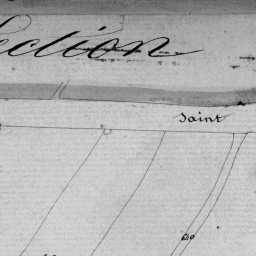 ection
Saint
60